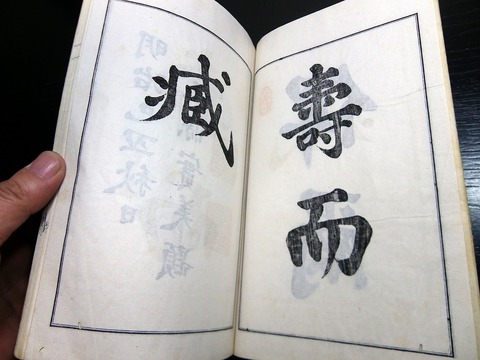 壽而
臧